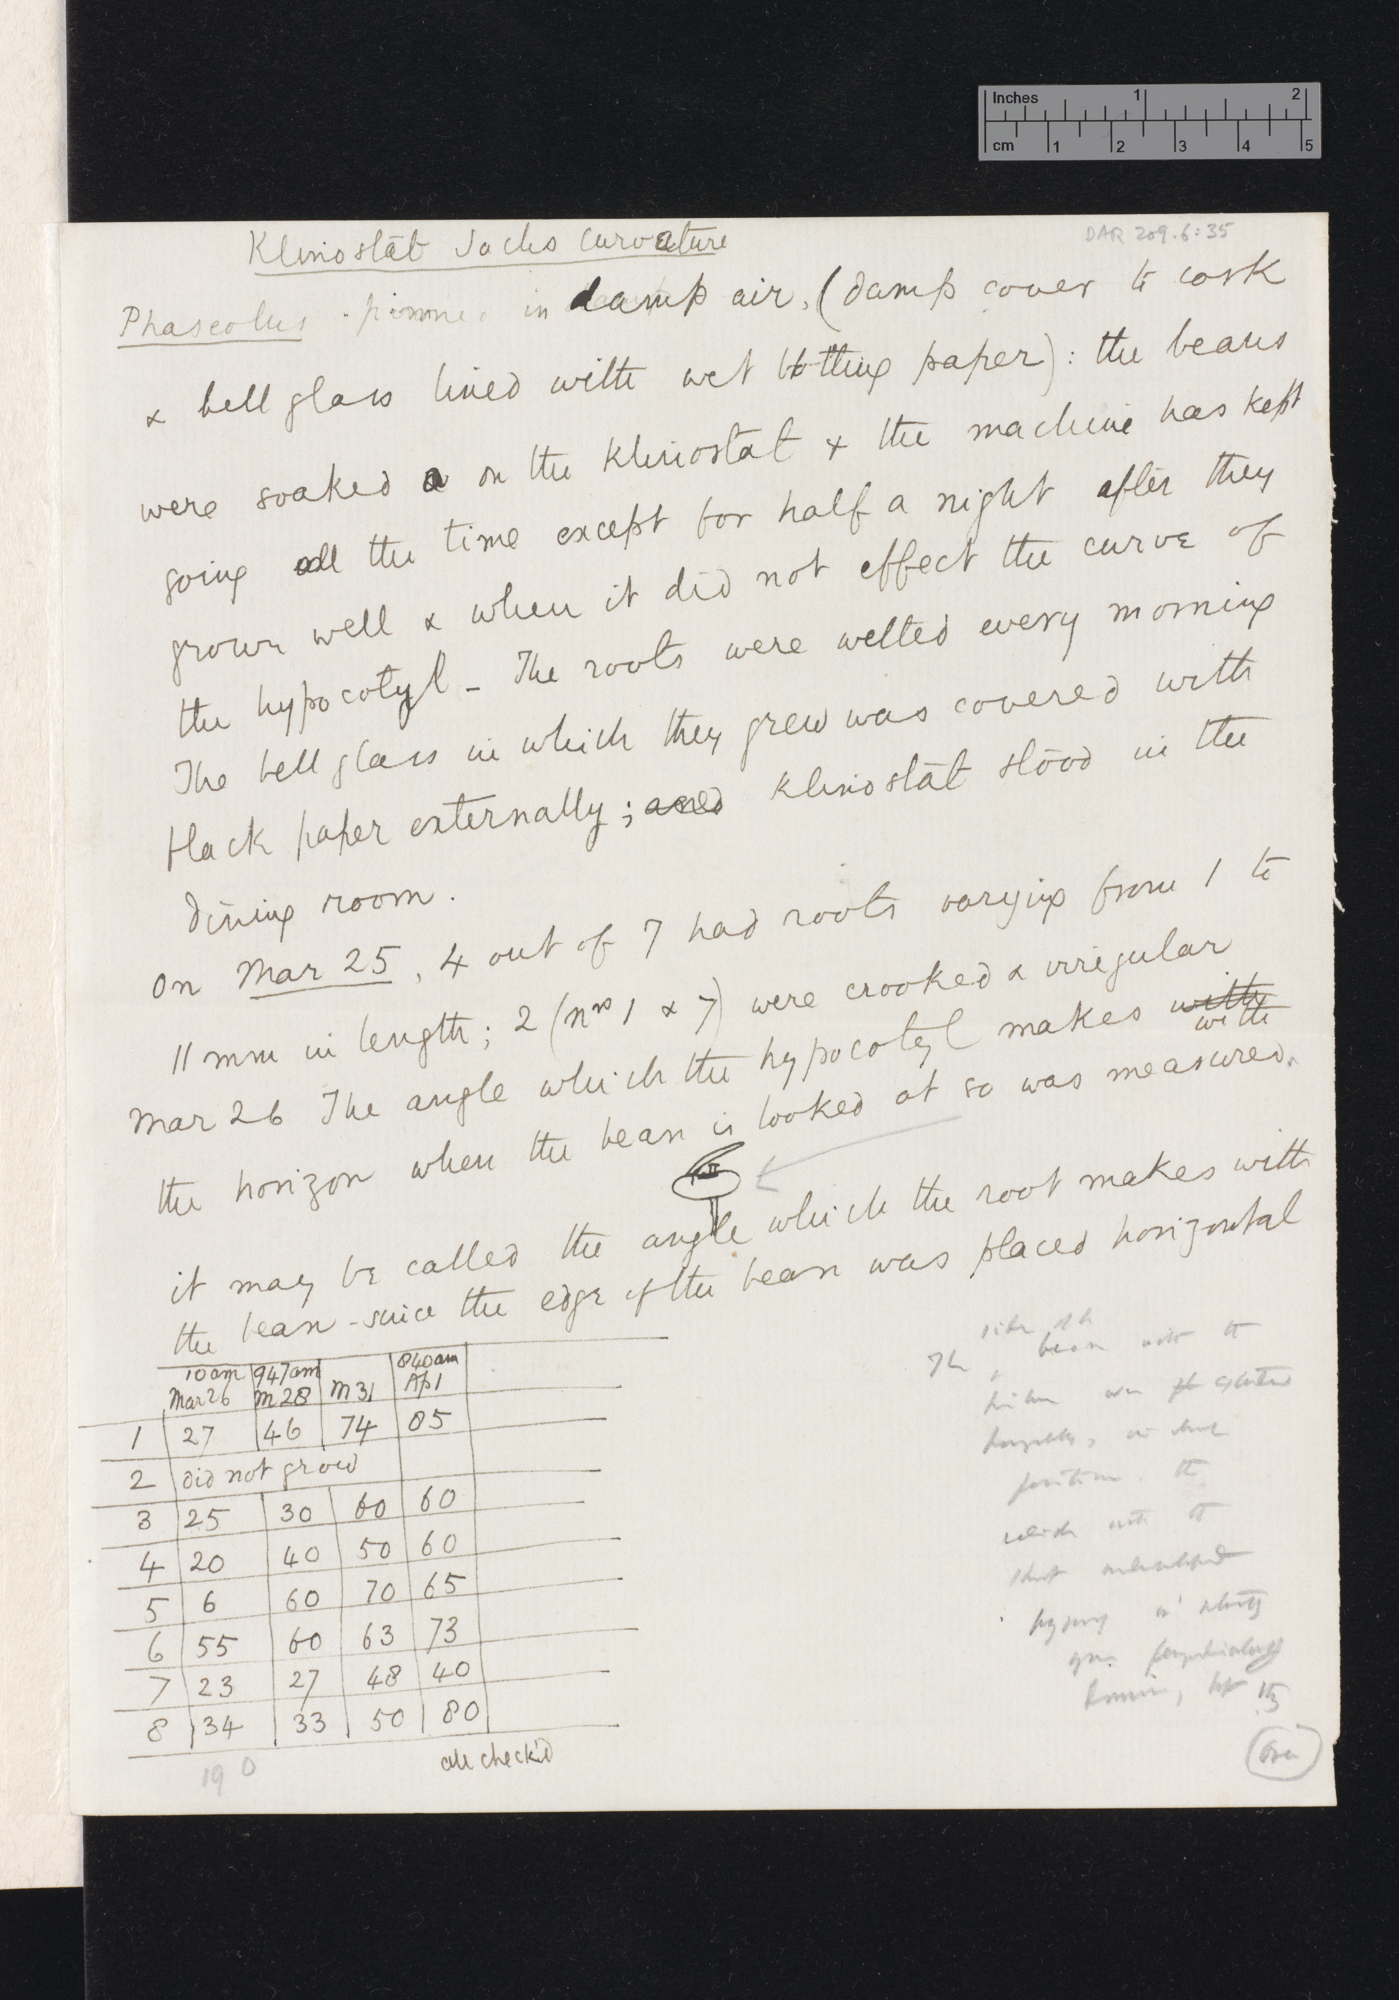 Inches 1 2
cm 1 2 3 4 5
DAR 209.6:35
Klinostat Sachs curvature
Phaseolus pinned in damp air, (damp cover to cork
& bell glass lined with wet blotting paper): the beans
were soaked on the Klinostat & the machine has kept
going all the time except for half a night after they
grown well & when it did not effect the curve of
the hypocotyl – The roots were wetted every morning
The bell glass in which they grew was covered with
black paper externally; and Klinostat stood in the
dining room.
On Mar 25, 4 out of 7 had roots varying from 1 to
11 mm in length; 2 (nos 1 & 7) were crooked & irregular
Mar 26 The angle which the hypocotyl makes with
with
the horizon when the bean is looked at so was measured.
it may be called the angle which the root makes with
the bean - since the edge of the bean was placed horizontal
10 am 9 47 am 8 40 am
Mar 26 M 28 M 31 Ap 1
1 27 46 74 85
2 Did not grow
3 25 30 60 60
4 20 40 50 60
5 6 60 70 65
6 55 60 63 73
7 23 27 48 40
8 34 33 50 80
all check'd
190
side of the
The bean with the
were
position the
which with the
(over)